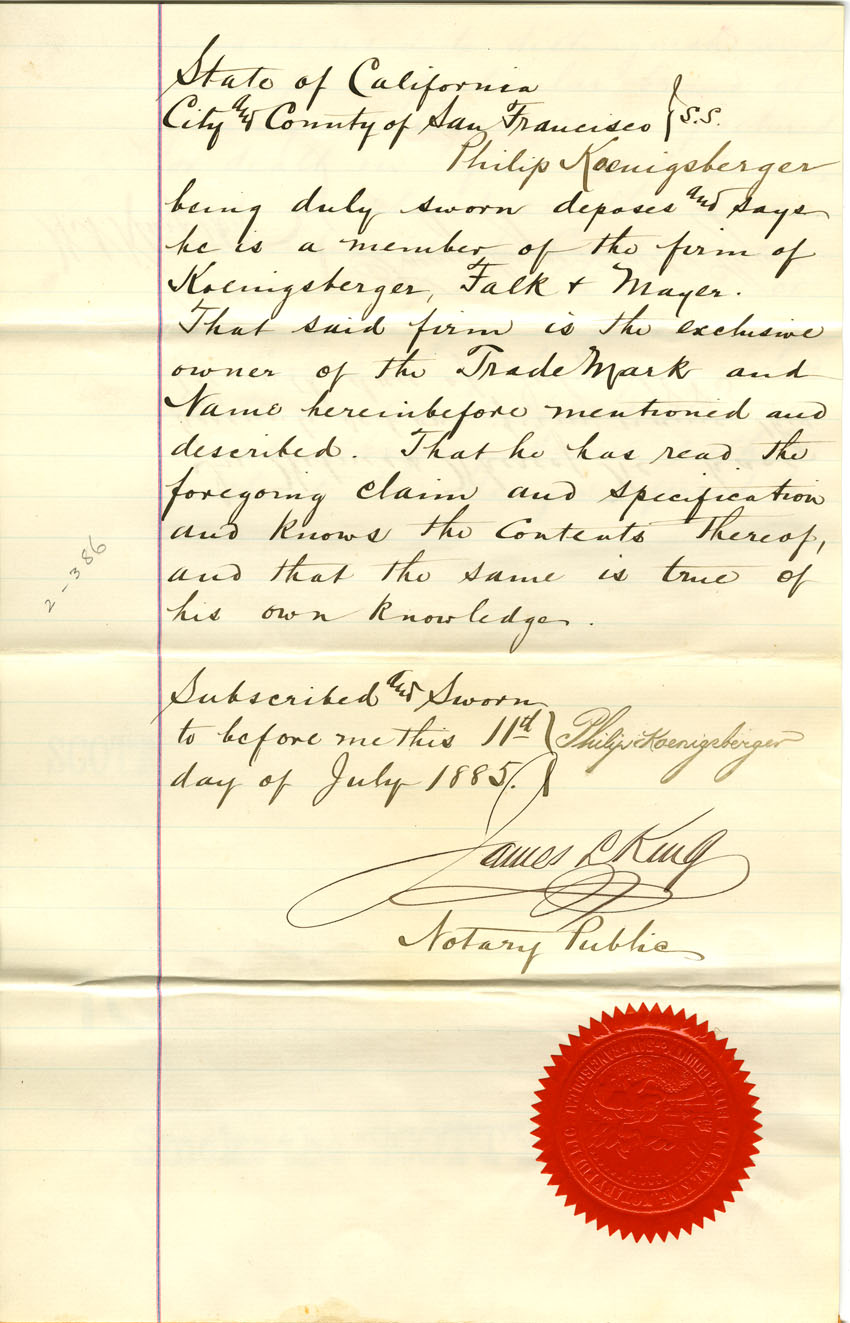 State of California
City and County of San Francisco } S.S.
Philip Koenigsberger
being duly sworn deposes and says
he is a member of the firm of
Koenigsberger, Falk & Mayer.
That said firm is the exclusive
owner of the Trade Mark and
Name hereinbefore mentioned and
described. That he has read the
foregoing claim and specification
and knows the Contents thereof,
and that the same is true of
his own knowledge.
2-386
Subscribed and Sworn
to before me this 11th } Philip Koenigsberger
day of July 1885.
James L King
Notary Public